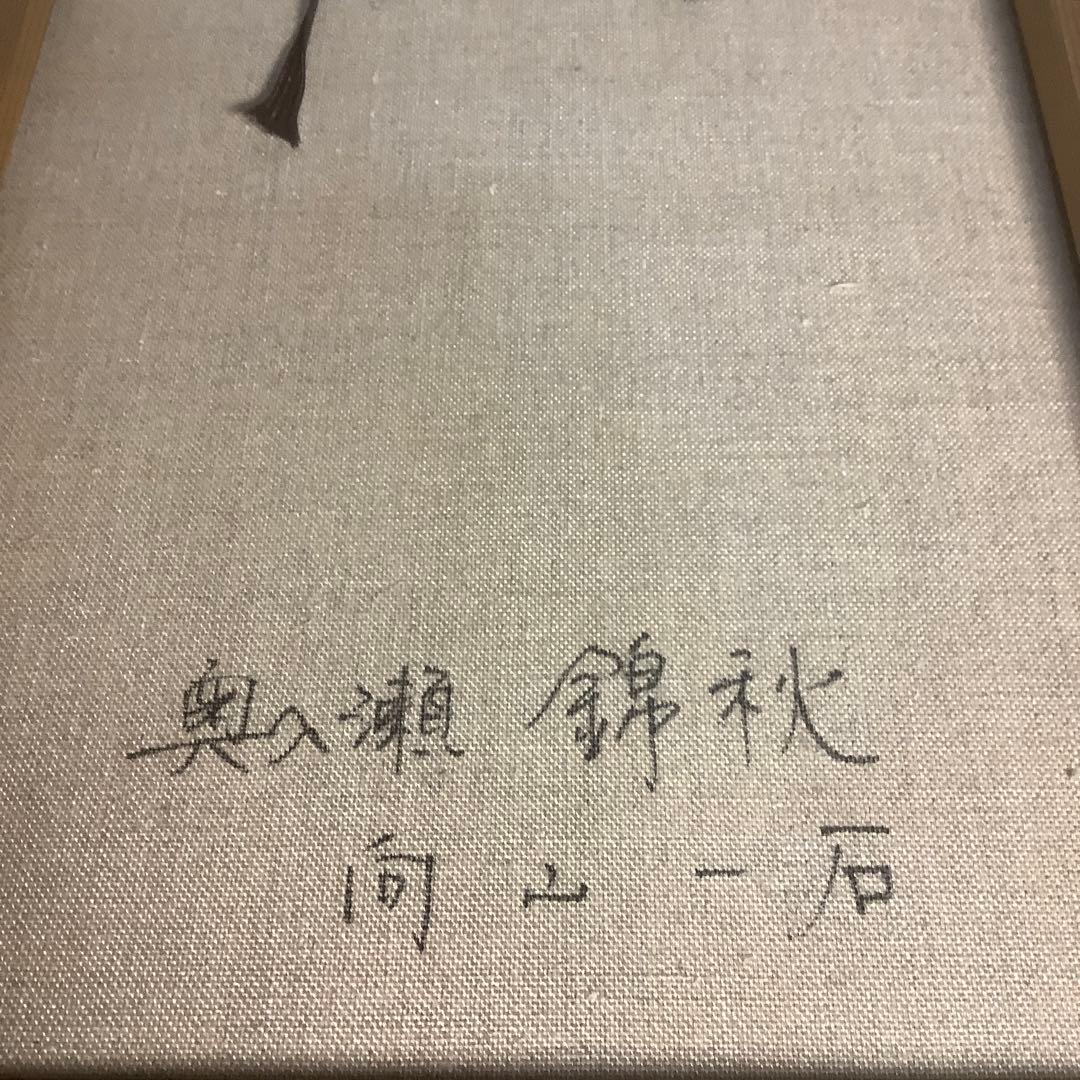 奥入瀬 錦秋
向山一石